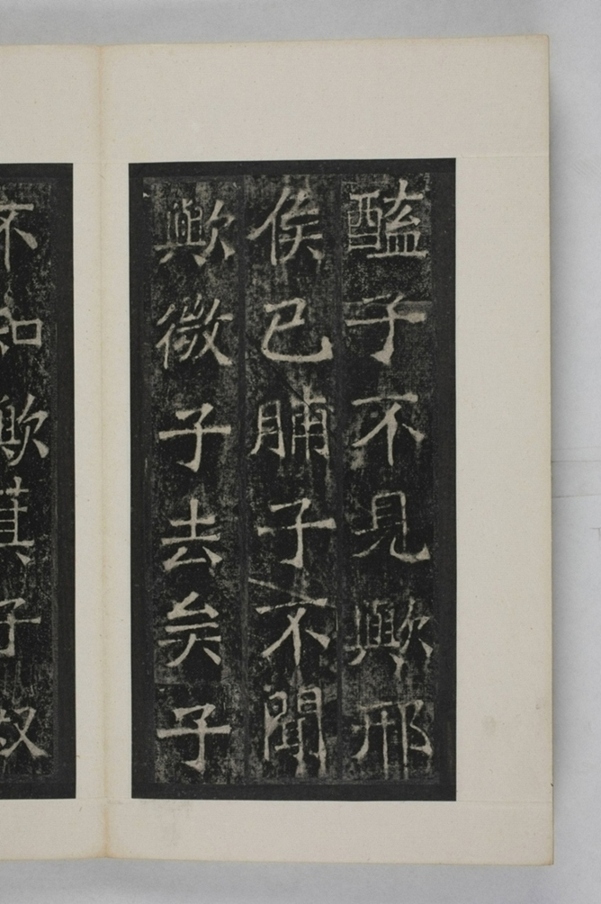 醢子不見歟邢
侯已脯子不聞
歟微子去矣子
不知歟其子奴